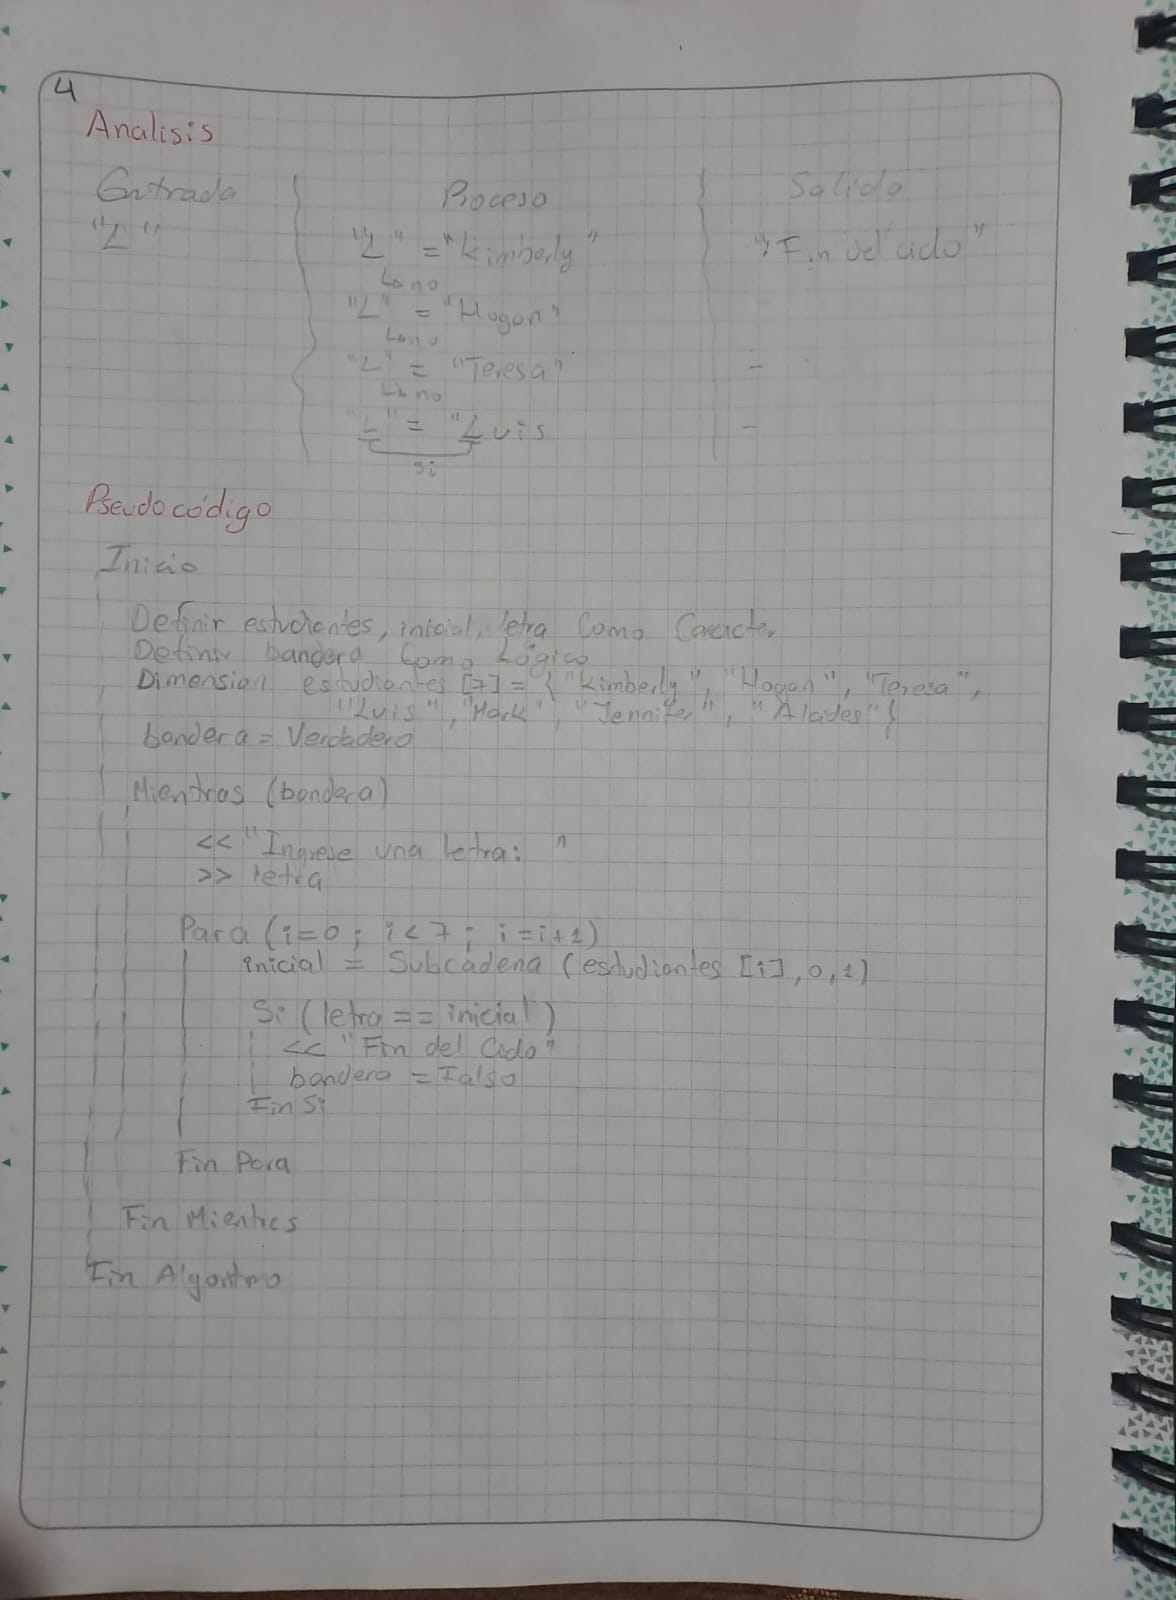 4
Analisis
Entrada Proceso Salida
"L" "L" = "Kimberly" "Fin del ciclo"
↳ no
"L" = "Hogan"
↳ no
"L" = "Teresa" -
↳ no
"L" = "Luis -
si
Pseudocódigo
Inicio
Definir estudiantes, inicial, letra Como Caracter
Definir bandera Como Lógico
Dimension estudiantes [7] = { "Kimberly", "Hogan", "Teresa",
"Luis", "Mark", "Jennifer", "Alcides"}
bandera = Verdadero
Mientras (bandera)
<< "Ingrese una letra: "
>> letra
Para (i=0 ; i<7 ; i=i+1)
inicial = Subcadena (estudiantes [i], 0, 1)
Si (letra == inicial)
<< "Fin del Ciclo"
bandera = Falso
Fin Si
Fin Para
Fin Mientras
Fin Algoritmo